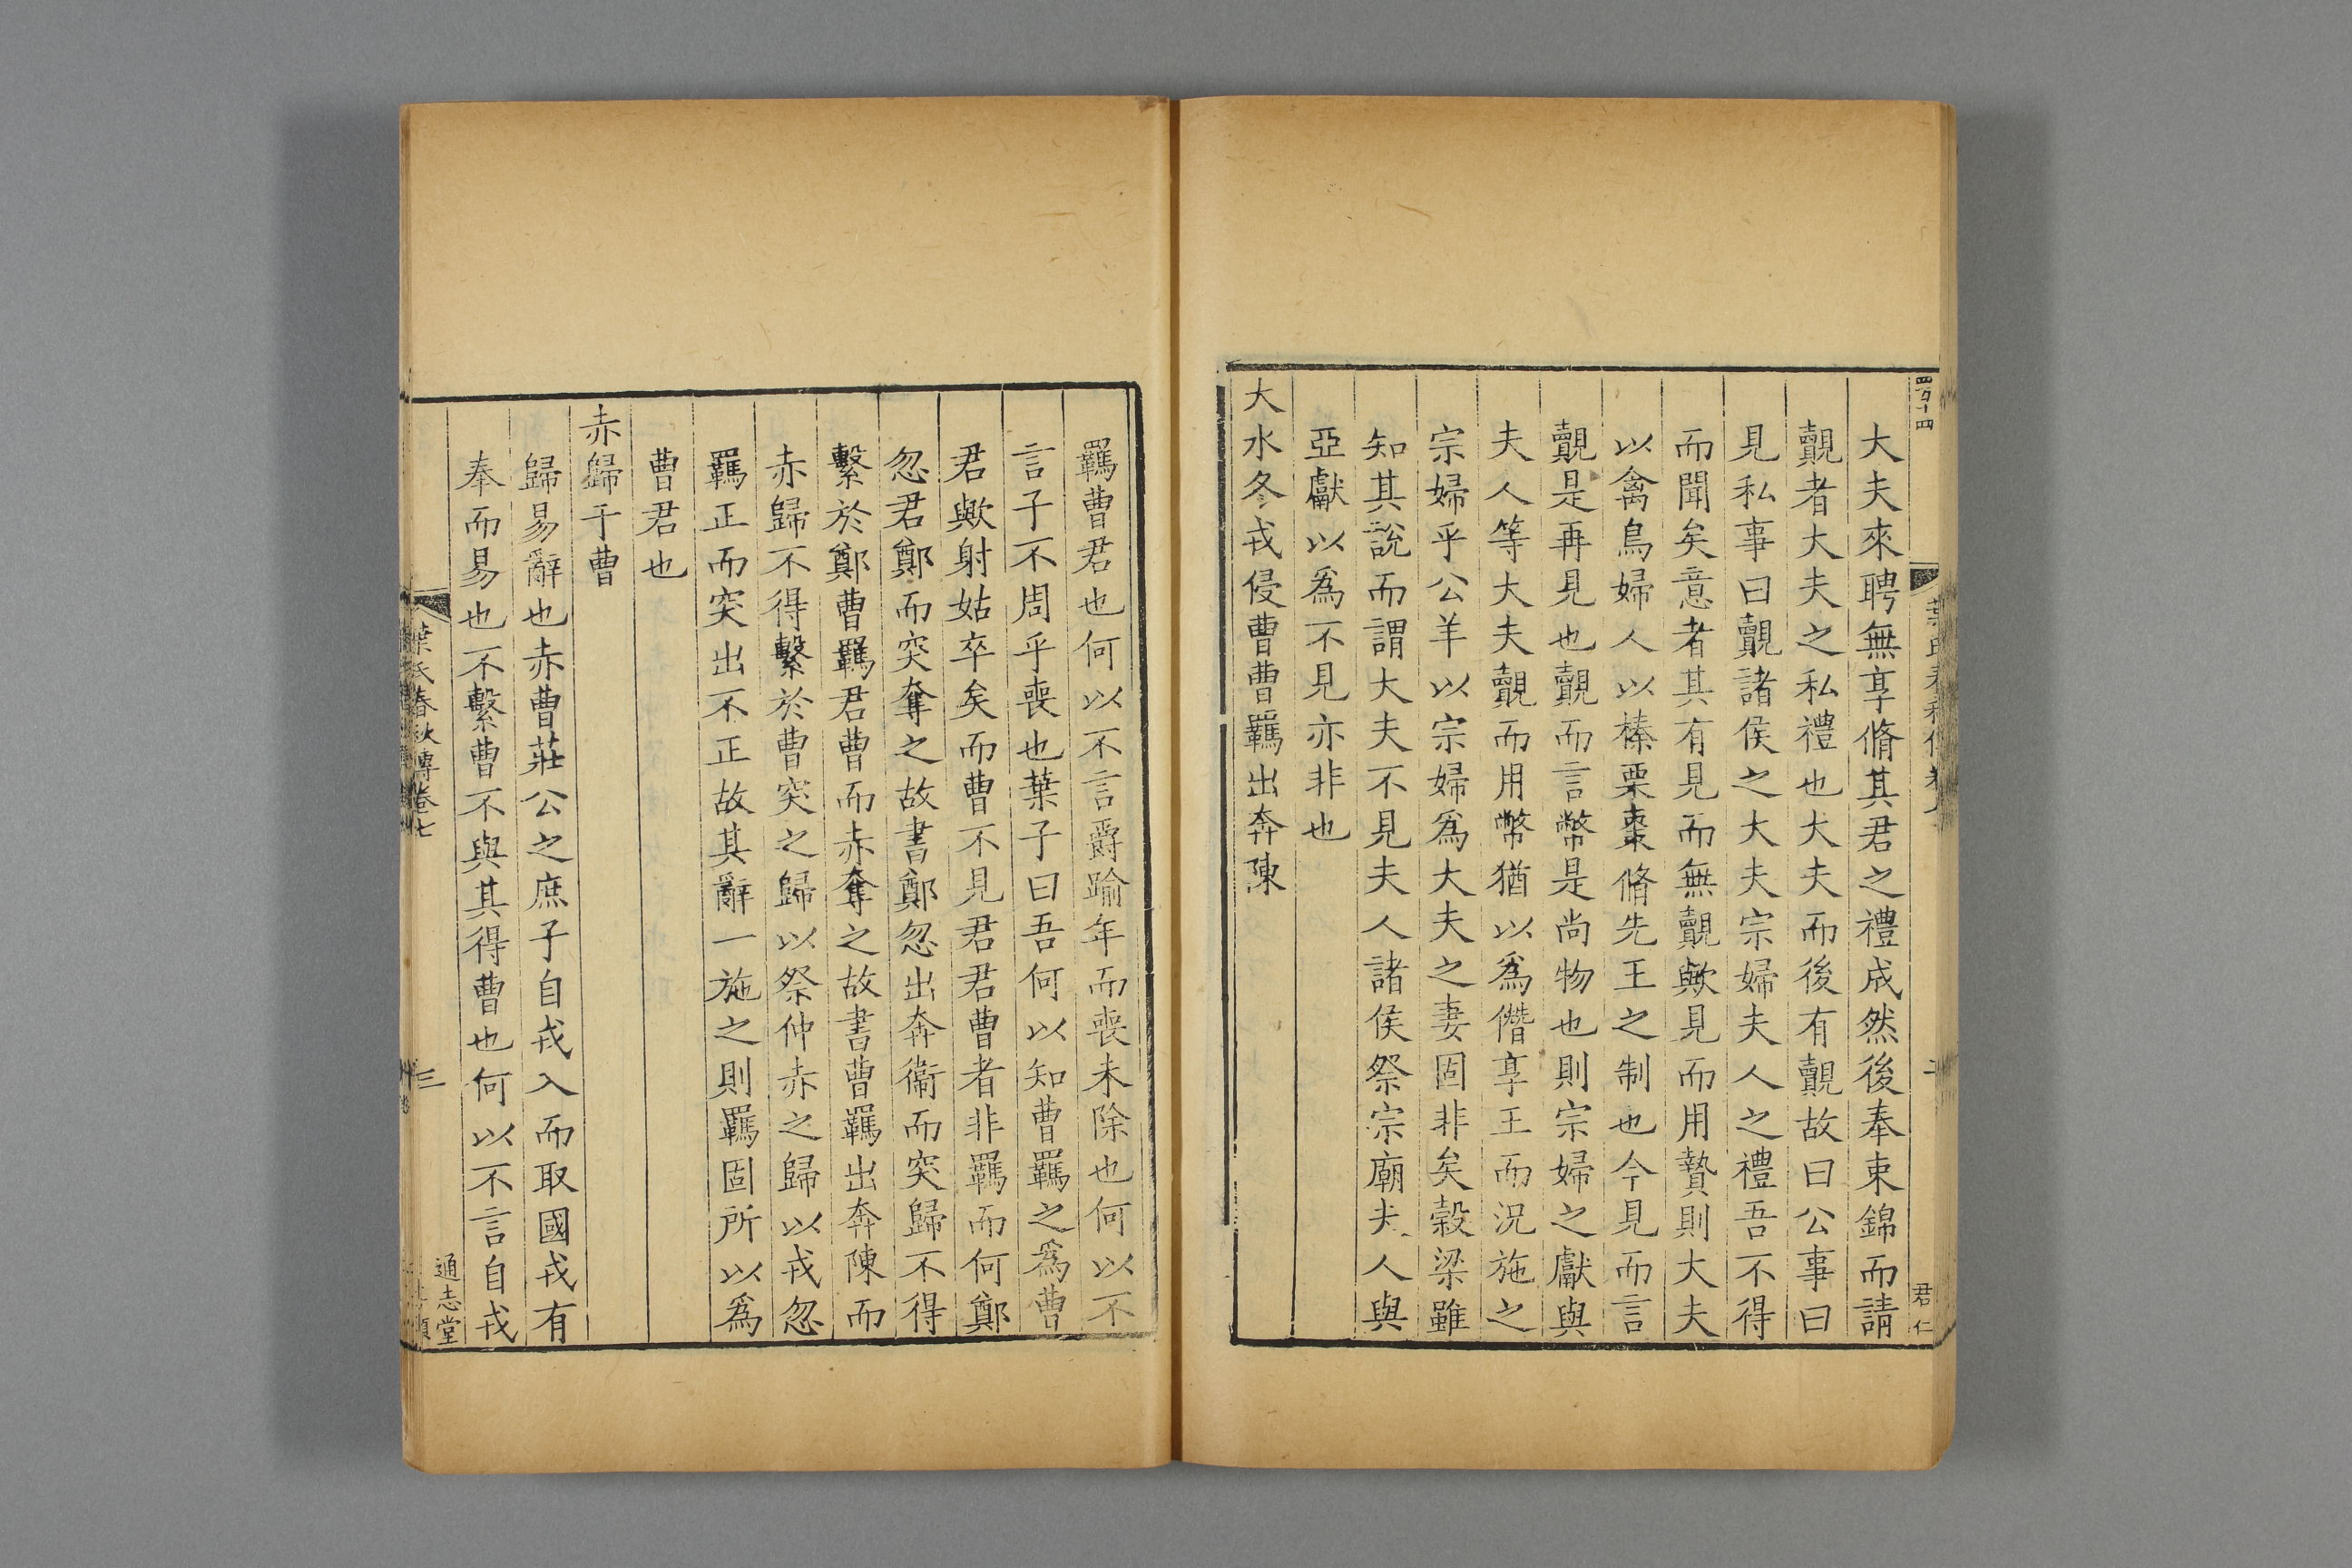 四百十四
君仁
大夫來聘無享脩其君之禮成然後奉束錦而請
覿者大夫之私禮也大夫而後有覿故曰公事曰
見私事曰覿諸侯之大夫宗婦夫人之禮吾不得
而聞矣意者其有見而無覿歟見而用贄則大夫
以禽鳥婦人以榛栗棗脩先王之制也今見而言
覿是再見也覿而言幣是尚物也則宗婦之獻與
夫人等大夫覿而用幣猶以爲僭享王而況施之
宗婦乎公羊以宗婦爲大夫之妻固非矣穀梁雖
知其說而謂大夫不見夫人諸侯祭宗廟夫人與
亞獻以爲不見亦非也
大水冬戎侵曹曹羈出奔陳
羈曹君也何以不言爵踰年而喪未除也何以不
言子不周乎喪也葉子曰吾何以知曹羈之爲曹
君歟射姑卒矣而曹不見君君曹者非羈而何鄭
忽君鄭而突奪之故書鄭忽出奔衞而突歸不得
繫於鄭曹羈君曹而赤奪之故書曹羈出奔陳而
赤歸不得繫於曹突之歸以祭仲赤之歸以戎忽
羈正而突出不正故其辭一施之則羈固所以爲
曹君也
赤歸于曹
歸易辭也赤曹莊公之庶子自戎入而取國戎有
奉而易也不繫曹不與其得曹也何以不言自戎
葉氏春秋傳卷七
三
通志堂